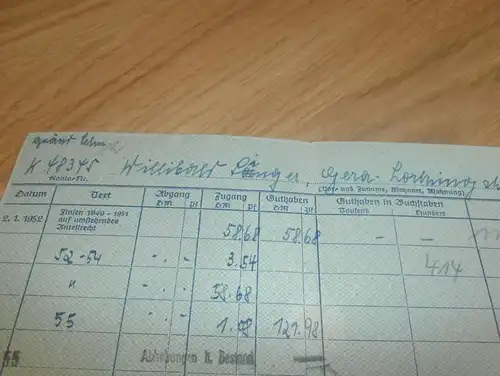 K 48345 Willibald
Konto-Nr. (Vor- und Zuname, Wohnort, Wohnung)
Datum Text Abgang DM Pf Zugang DM Pf Guthaben DM Pf Guthaben in Buchstaben Tausend Hundert
2.1.1952 Zinsen 1949-1951 auf umstehendes Anteilrecht 58.68 58.68 – –
52-54 - . - 3.54 414
" - . - 58.68
55 - . - 121.98
55 Abhebungen lt. Bestand